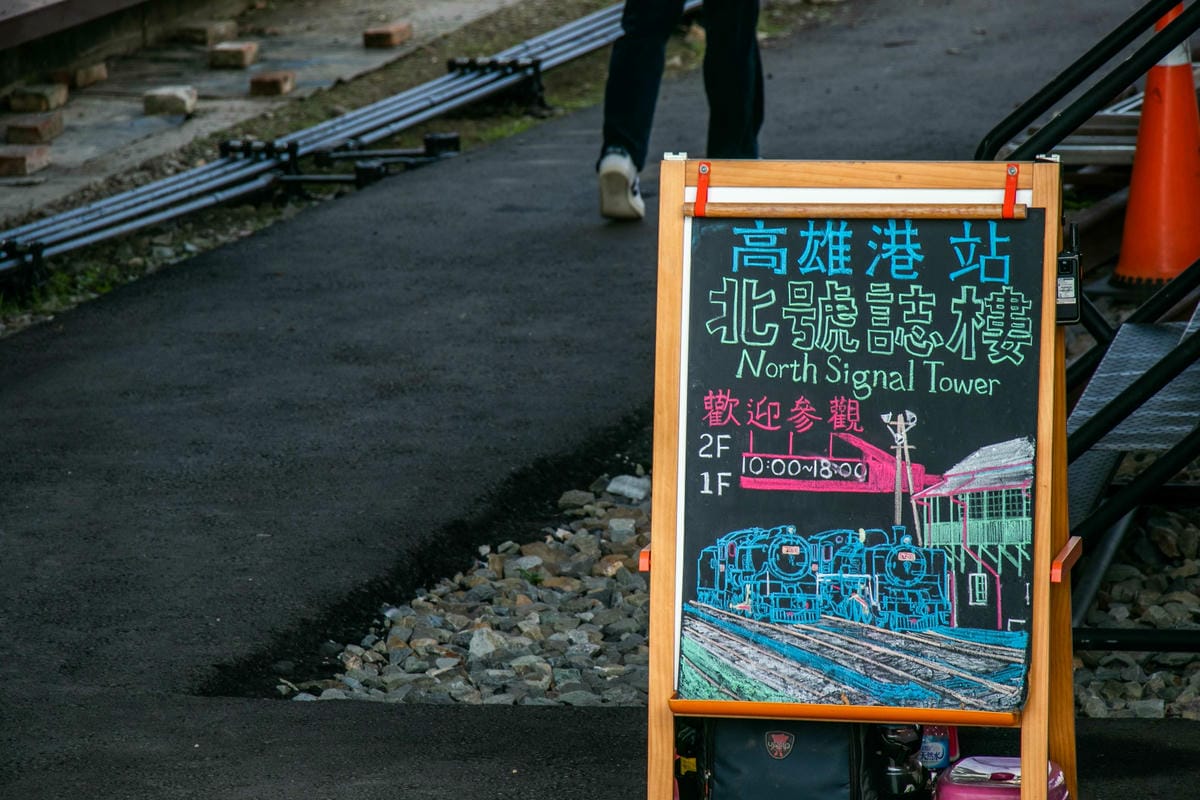 高雄港站
北號誌樓
North Signal Tower
歡迎參觀
2F
10:00~18:00
1F
天然水